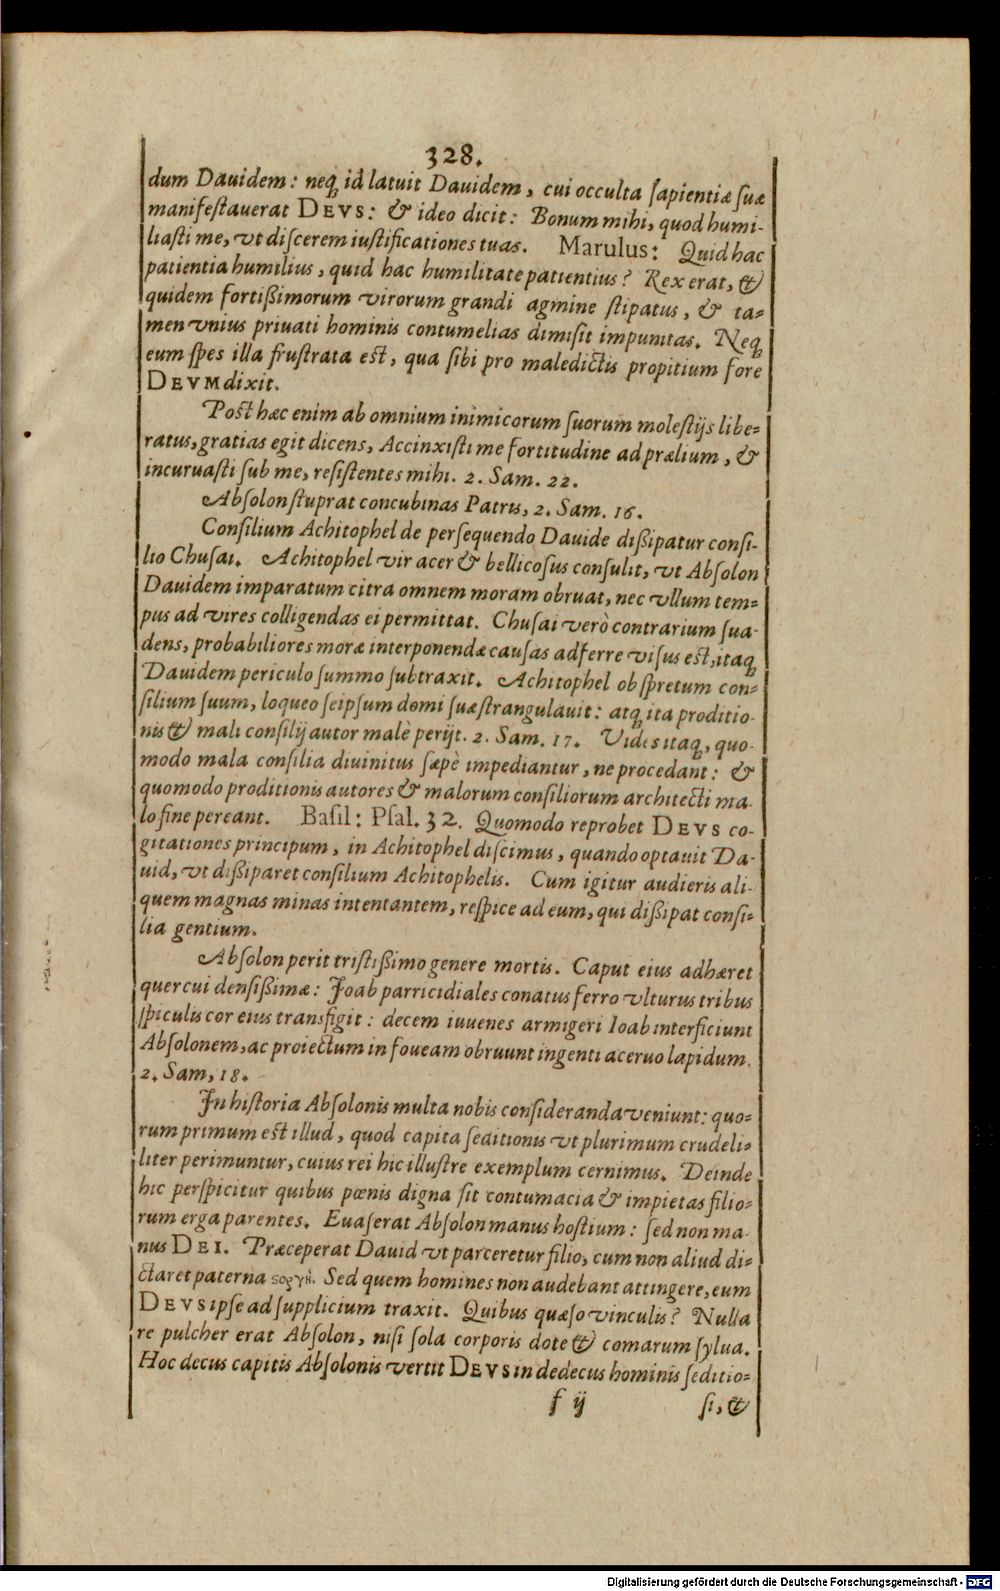 328.
dum Dauidem: neq́ id latuit Dauidem, cui occulta ſapientiæ ſuæ
manifeſtauerat DEVS: & ideo dicit: Bonum mihi, quod humi-
liaſti me, vt diſcerem iuſtificationes tuas. Marulus: Quid hac
patientia humilius, quid hac humilitate patientius? Rex erat, &
quidem fortißimorum virorum grandi agmine ſtipatus, & ta=
men vnius priuati hominis contumelias dimiſit impunitas. Neq́
eum ſpes illa fruſtrata eſt, qua ſibi pro maledictis propitium fore
DEVM dixit.
Poſt hæc enim ab omnium inimicorum ſuorum moleſtijs libe=
ratus, gratias egit dicens, Accinxiſti me fortitudine ad prælium, &
incuruaſti ſub me, reſiſtentes mihi. 2. Sam. 22.
Abſolon ſtuprat concubinas Patris, 2. Sam. 16.
Conſilium Achitophel de perſequendo Dauide dißipatur conſi-
lio Chuſai. Achitophel vir acer & bellicoſus conſulit, vt Abſolon
Dauidem imparatum citra omnem moram obruat, nec vllum tem=
pus ad vires colligendas ei permittat. Chuſai verò contrarium ſua-
dens, probabiliores moræ interponendæ cauſas adferre viſus eſt, itaq́
Dauidem periculo ſummo ſubtraxit. Achitophel ob ſpretum con=
ſilium ſuum, loqueo ſeipſum domi ſuæ ſtrangulauit: atq́ ita proditio-
nis & mali conſilij autor malè perijt. 2. Sam. 17. Vides itaq́, quo-
modo mala conſilia diuinitus ſæpè impediantur, ne procedant: &
quomodo proditionis autores & malorum conſiliorum architecti ma-
lo fine pereant. Baſil: Pſal. 32. Quomodo reprobet DEVS co-
gitationes principum, in Achitophel diſcimus, quando optauit Da-
uid, vt dißiparet conſilium Achitophelis. Cum igitur audieris ali-
quem magnas minas intentantem, reſpice ad eum, qui dißipat conſi=
lia gentium.
Abſolon perit triſtißimo genere mortis. Caput eius adhæret
quercui denſißimæ: Joab parricidiales conatus ferro vlturus tribus
ſpiculis cor eius transfigit: decem iuuenes armigeri Ioab interficiunt
Abſolonem, ac proiectum in foueam obruunt ingenti aceruo lapidum.
2. Sam, 18.
In hiſtoria Abſolonis multa nobis conſideranda veniunt: quo=
rum primum eſt illud, quod capita ſeditionis vt plurimum crudeli=
liter perimuntur, cuius rei hic illuſtre exemplum cernimus. Deinde
hic perſpicitur quibus pœnis digna ſit contumacia & impietas filio=
rum erga parentes. Euaſerat Abſolon manus hoſtium: ſed non ma-
nus DEI. Præceperat Dauid vt parceretur filio, cum non aliud di=
ctaret paterna Sed quem homines non audebant attingere, eum
DEVS ipſe ad ſupplicium traxit. Quibus quæſo vinculis? Nulla
re pulcher erat Abſolon, niſi ſola corporis dote & comarum ſylua.
Hoc decus capitis Abſolonis vertit DEVS in dedecus hominis ſeditio=
f ij ſi, &
Digitalisierung gefördert durch die Deutsche Forschungsgemeinschaft - DFG